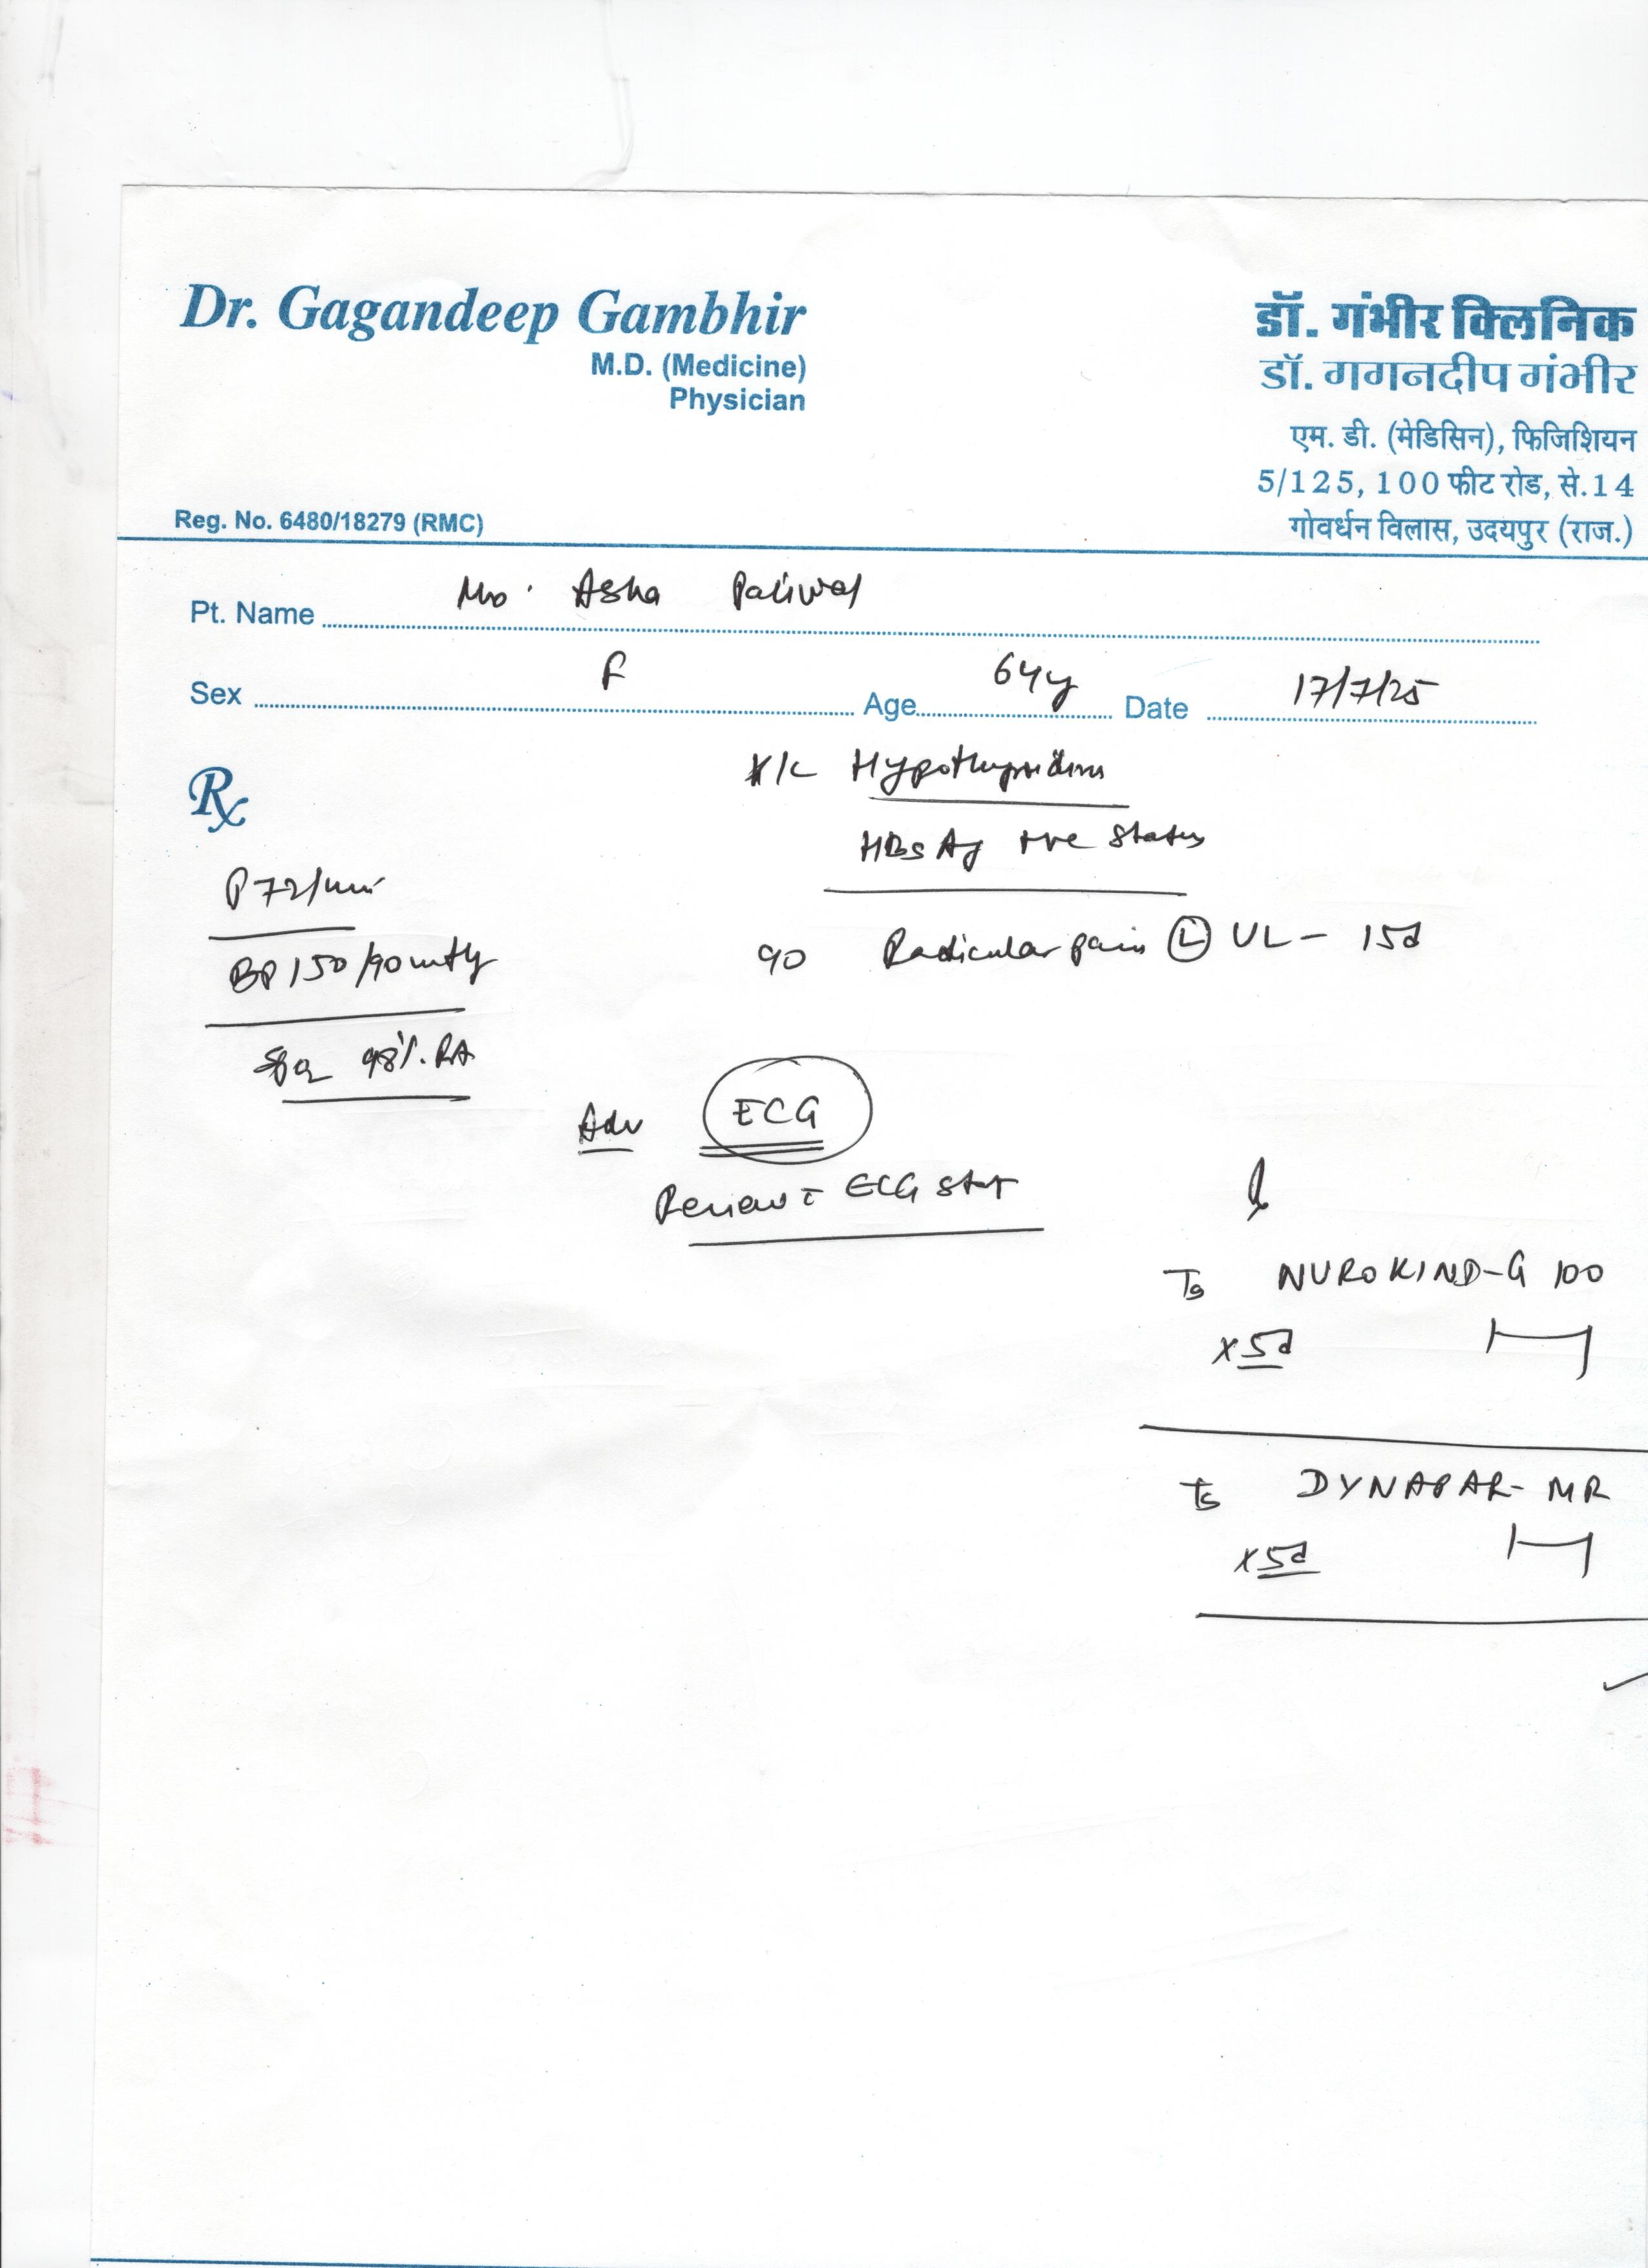 Dr. Gagandeep Gambhir
M.D. (Medicine)
Physician
Reg. No. 6480/18279 (RMC)
डॉ. गंभीर क्लिनिक
डॉ. गगनदीप गंभीर
एम. डी. (मेडिसिन), फिजिशियन
5/125, 100 फीट रोड, से.14
गोवर्धन विलास, उदयपुर (राज.)
Pt. Name Mrs. Asha Paliwal
Sex F Age 64y Date 17/7/25
Rx
K/C Hypothyroidism
HBsAg +ve status
P 72/min
BP 150/90 mmHg
SpO2 98% RA
Radicular pain (L) UL - 15d
Adv ECG
Review c ECG stat
NUROKIND-G 100
x 5d
DYNAPAR-MR
x 5d